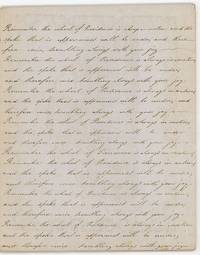 Remember the wheel of Providence is always in motion and the
spoke that is uppermost will be under, and there-
fore mix trembling always with your joy.
Remember the wheel of Providence is always in motion
and the spoke that is uppermost will be under,
and therefore mix trembling always with your joy.
Remember the wheel of Providence is always in motion
and the spoke that is uppermost will be under, and
therefore mix trembling always with your joy.
Remember the wheel of Providence is always in motion
and the spoke that is uppermost will be under
and therefore mix trembling always with your joy.
Remember the wheel of Providence is always in motion
and the spoke that is uppermost will be under,
and therefore mix trembling always with your joy.
Remember the wheel of Providence is always in motion
and the spoke that is uppermost will be under
and therefore mix trembling always with your joy.
Remember the wheel of Providence is always in motion
and the spoke that is uppermost will be under,
and therefore mix trembling always with your joy.